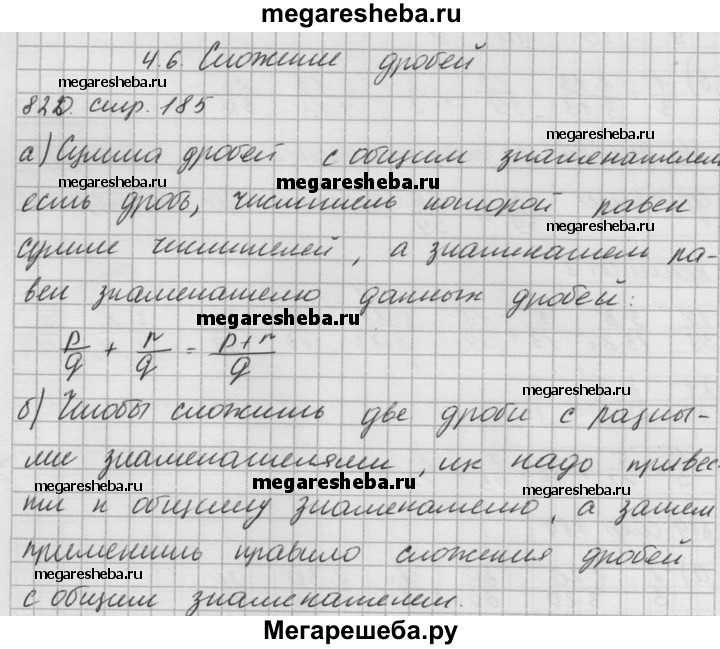 megaresheba.ru
4.6. Сложение дробей
megaresheba.ru
822. стр. 185
megaresheba.ru
а) Сумма дробей с общим знаменателем
megaresheba.ru
megaresheba.ru
есть дробь, числитель которой равен
megaresheba.ru
сумме числителей, а знаменатель ра-
megaresheba.ru
вен знаменателю данных дробей:
megaresheba.ru
p/q + r/q = p+r/q
megaresheba.ru
б) Чтобы сложить две дроби с разны-
ми знаменателями, их надо привес-
megaresheba.ru
megaresheba.ru
megaresheba.ru
ти к общему знаменателю, а затем
применить правило сложения дробей
megaresheba.ru
megaresheba.ru
с общим знаменателем.
Мегарешеба.ру